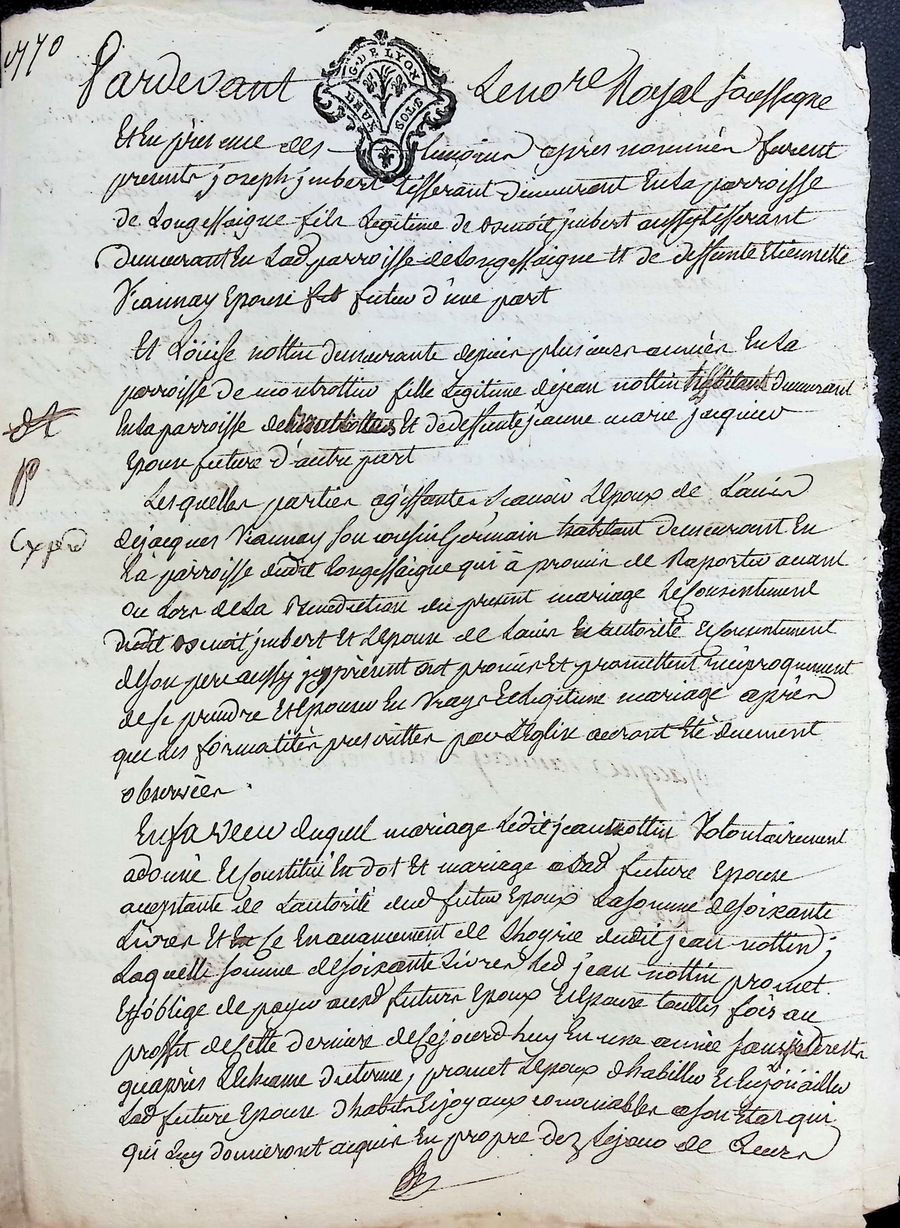 1770
Pardevant Lenore Royal soussigne
G. DE LYON
SOLS
Et En présence des temoins après nommés furent
presents joseph jmbert tisserant demeurant En la parroisse
de Longessaigne fils Legitime de Benoit jmbert aussy tisserant
demeurant En Lad parroisse de Longessaigne et de deffunte Etiennette
Viannay Epoux futur d'une part
Et Loüise nottin demeurante depuis plusieurs années En La
parroisse de montrottier fille Legitime de jean nottin habitant demeurant
En La parroisse de Et de deffunte jeanne marie jacquier
Epouse future d'autre part
Lesquelles parties agissantes sçavoir L'Epoux de L'avis
de jacques Viannay son cousin Germain habitant demeurant En
La parroisse dudit Longessaigne qui à promis de Raporter avant
ou Lors de La Benediction du present mariage Le Consentement
dudit Benoit jmbert Et L'Epouse de L'avis Et autorité Et Consentement
de son pere aussy jcy présent ont promis Et promettent réciproquement
de se prendre Et Epouser En Vray Et Legitime mariage après
que Les formalités prescrittes par L'Eglise auront Eté duement
observées.
En faveur duquel mariage Ledit jean nottin Volontairement
a donné Et Constitué En dot Et mariage a Lad future Epouse
acceptante de L'autorité dud futur Epoux La somme de soixante
Livres Et Ce En avancement de L'hoyrie dudit jean nottin;
Laquelle somme de soixante Livres Led jean nottin promet
Et s'oblige de payer auxd futurs Epoux Et Epouse touttes fois au
proffit de Cette derniere de Cejourd'huy En une année sans jnterests
qu'après L'Echéance du terme, promet L'Epoux d'habiller Et Enjoüailler
Lad future Epouse d'habits Et joyaux convenables a son Etat qui
qui Luy demeuront acquis En propre dez Le jour de Leurs
Exped